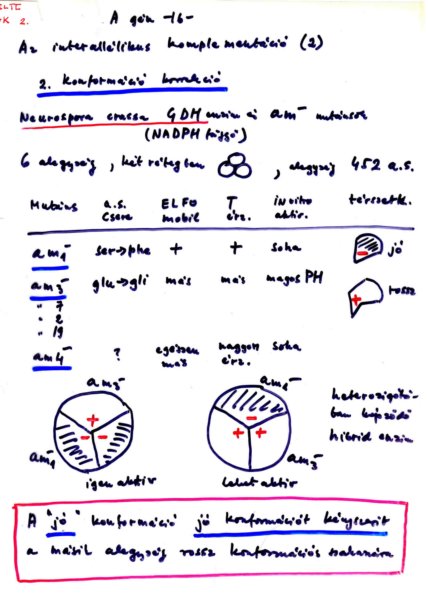 ELTE
K 2.
A gén -16-
Az interallélikus komplementáció (2)
2. Konformáció korrekció
Neurospora crassa GDH enzim és am⁻ mutánsok
(NADPH függő)
6 alegység, két rétegben , alegység 452 a.s.
Mutáns a.s. csere ELFO mobil T érz. in vitro aktiv. térszerk.
am1⁻ ser→phe + + soha - jó
am3⁻ glu→gli más más magas PH + rossz
" 7
" 2
" 19
am4⁻ ? egészen más nagyon érz. soha
am3⁻ am1⁻
+ - - - + +
am1⁻ am3⁻
igen aktív lehet aktív
heterozigótá-
ban képződő
hibrid enzim
A "jó" konformáció jó konformációt kényszerít
a másik alegység rossz konformációs szakaszára